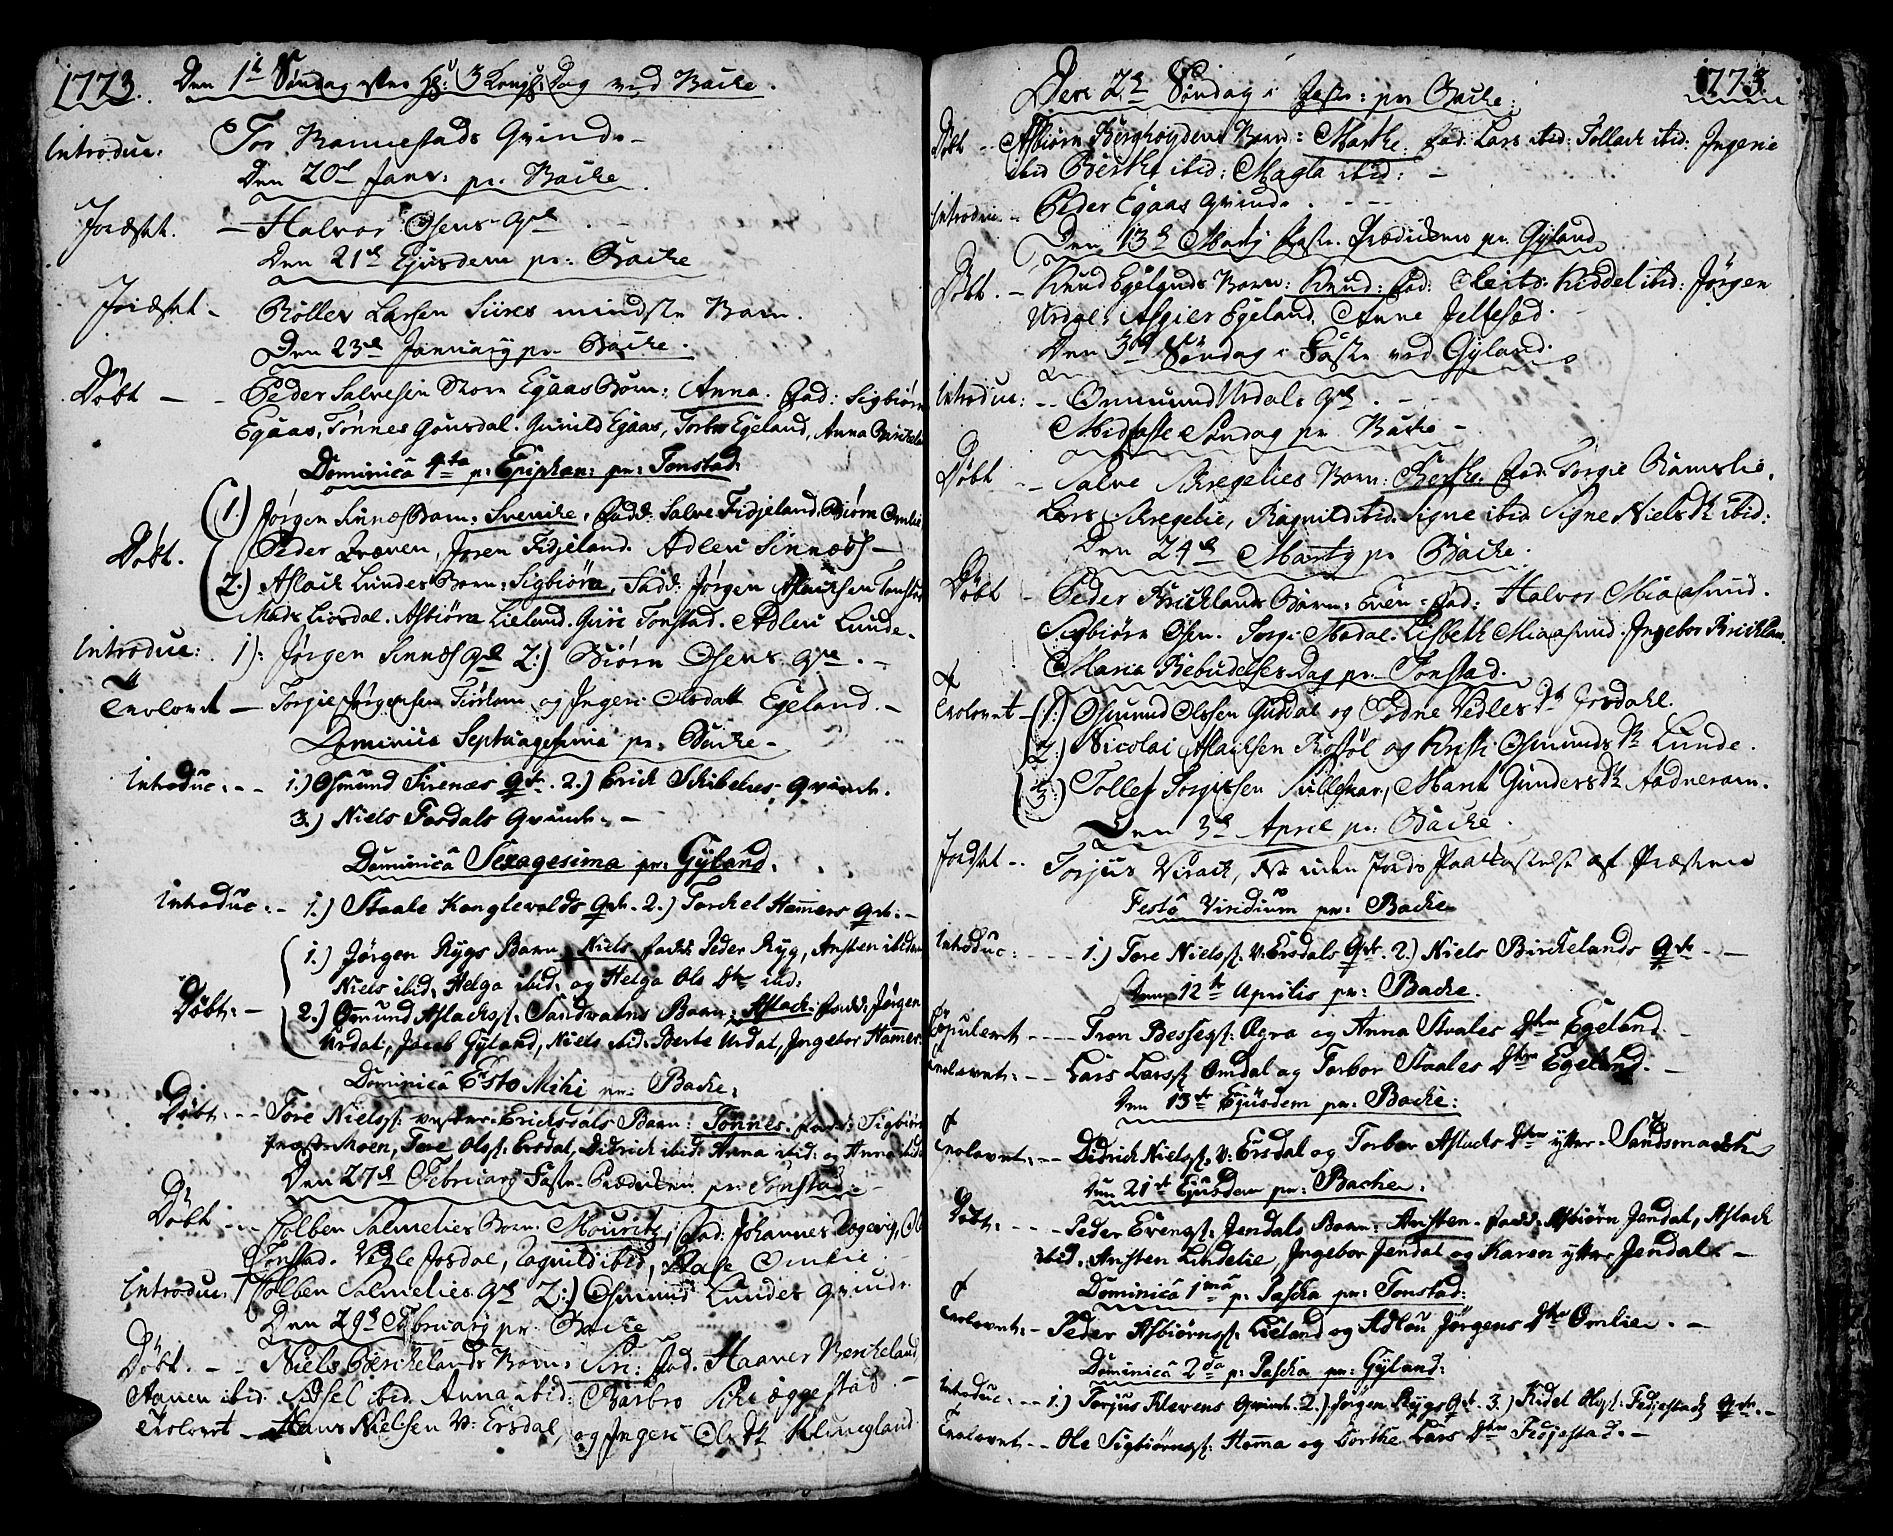 1773. Den 1te Søndag efter H: 3 Kong: Dag ved Backe.
Introduc: Tor Rannestads Qvinde
Den 20de Janv: pr. Backe
Jordfæstet. — Halvor Osens Qde
Den 21de Ejusdem pr: Backe
Jordfæstet — Rollev Larsen Siires mindste Barn.
Den 23de January pr. Backe.
Døbt — Peder Salvesen Egaas Barn: Anna. Fad: Sigbiørn
Egaas, Tønnes Gousdal. Gunild Egaas, Torbor Egeland, Anna
Dominica 4ta p: Epiphan: pr: Tonstad:
Døbt. 1.) Jørgen Sinnes Barn: Svenike, Fadd: Salve Fidjeland, Biørn Omlie
Peder Qvæven, Joren Fidjeland. Adleu Sinnes —
2.) Aslack Lundes Barn: Sigbiørn, Fadd: Jørgen Aslacksen Tonstad
Mads Liosdal. Asbiørn Lieland. Guri Tonstad. Adleu Lunde.
Introduc: 1): Jørgen Sinnes Qde 2:) Biørn Osens Qde. -
Trolovet — Torgie Jørgensen Fiotland og Ingeri Olsdatt Egeland. -
Dominica Septuagesima pr. Backe —
Introduc: -- 1.) Osmund Sirenæs Qde. 2.) Erick Skibelies Qvinde.
3.) Niels Fosdals Qvinde. —
Dominica Sexagesima pr: Gyland.
Introduc: - 1.) Staale Konglevolds Qde. 2.) Torckel Hamers Qde. -
Døbt: - 1.) Jørgen Rygs Barn Niels. Fadd: Peder Ryg, Ansten ibidem
Niels ibid, Helga ibid, og Helga Ols Dtr ibid:
2.) Omund Aslachs: Sandvatns Barn: Aslack. Fadd: Jørgen
Urdal, Jacob Gyland, Niels ibid: Berte Urdal, Ingebor Hammer
Dominica Esto Mihi pr: Backe:
Døbt: -- Tore Niels: vester Ericksdals Barn: Tønnes. Fadd: Sigbiørn
Moen, Tore Ols: Ersdal, Didrick ibid: Anna ibid: og Anna ibid:
Den 27de February Faste Prædicken pr: Tonstad:
Døbt -- Tolben Salmelies Barn: Mouritz, Fad: Johannes
Tonstad. Vegle Josdal, Ragnild ibid, Aase Omlie
Introduc: Tolben Salmelies Qde 2:) Osmund Lundes Qvinde
Den 29de February pr. Backe
Døbt. -- Niels Berckelands Barn: Siri: Fad. Haaver Berckeland
Aanen ibid. Sidsel ibid. Anna ibid: Barbro Sire æggestad. -
Trolovet — Hans Nielsen V: Ersdal, og Ingeri Ols Dtr Klungland
1773.
Den 2de Søndag i Faste: pr Backe:
Døbt -- Asbiørn Berghøydens Barn: Marthe. Fad: Lars ibid: Tollack ibid: Ingerie
ibid Berthe ibid: Magla ibid: -
Introduc. - Peder Egaas Qvinde. - - -
Den 13de Martij Faste. Prædicken pr. Gyland
Døbt. - Knud Egelands Barn: Knud: Fad: Kiddel ibid: Jørgen
Urdal. Asgier Egeland, Anne Jellestad.
Den 3de Søndag i Faste ved Gyland.
Introduc: -- Ommund Urdals Qde. -
Midfaste Søndag pr. Backe -
Døbt -- Salve Skregelies Barn: Berthe. Fad: Torgie Ramslie.
Lars Skregelie, Ragnild ibid. Signe ibid Signe Niels Dtr ibid:
Den 24de Martij pr Backe.
Døbt - Peder Bricklands Barn: Sven: Fad: Halvor Miaasund.
Sigbiørn Osen. Torgi Modal. Lisbeth Miaasund. Ingebor Bricklan
Maria Bebudelses Dag pr. Tonstad.
Trolovet - 1.) Osmund Olssen Guddal og Vedles Dtr Josdahl.
2.) Nicolai Aslacksen Rosøl og Kristi Osmunds Dtr Lunde.
3.) Tollef Torgiesen Sulleskar, Marit Gunders Dtr Aadneram.
Den 3de April pr: Backe.
Jordfæstet -- Torjus Virack, Nb uden Jords Paakastelse af Præsten
Festo Viridium pr: Backe
Introduc: ---- 1.) Tore Niels: V: Ersdals Qde. 2.) Niels Birckelands Qde. -
Den 12te Aprilis pr: Backe.
Copuleret ---- Tron Besseg: Aera og Anna Staales Dtr Egeland. -
Trolovet: -- Lars Lars: Omdal og Torbor Staales Dtr Egeland. -
Den 13de Ejusdem pr: Backe:
Trolovet: -- Didrick Niels: V: Ersdal og Torbor Aslachs Dtr ytter Sandsmarck
Den 21de Ejusdem pr: Backe.
Døbt: ---- Peder Evens: Jendals Barn: Ansten. Fadd: Asbiørn Jendal, Aslack
ibid. Ansten Lindelie, Ingebor Jendal og Karen ytter Jendal. -
Dominica 1mâ p: Pascha pr: Tonstad:
Trolovet: - Peder Asbiørns: Lieland og Adlou Jørgens Dtr Omlie. -
Dominica 2da p: Pascha pr: Gyland:
Introduc: -- 1.) Torjus Klevens Qvinde. 2.) Jørgen Rygs Qde. 3.) Kidel Ols: Fedjestad Qde. -
Trolovet: -- Ole Sigbiørns: Homma og Dorthe Lars Dtr Fedjestad. -